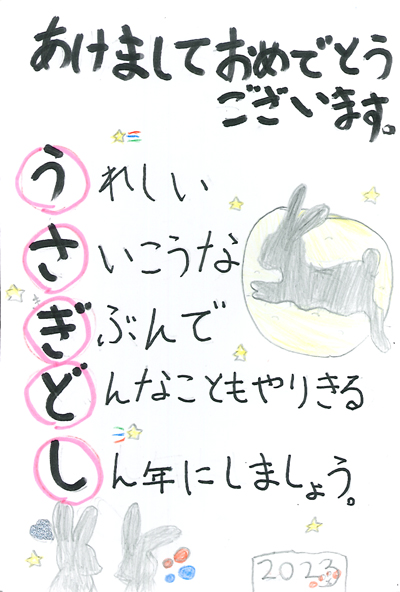 あけましておめでとう
ございます。
うれしい
さいこうな
ぎぶんで
どんなこともやりきる
しん年にしましょう。
2023